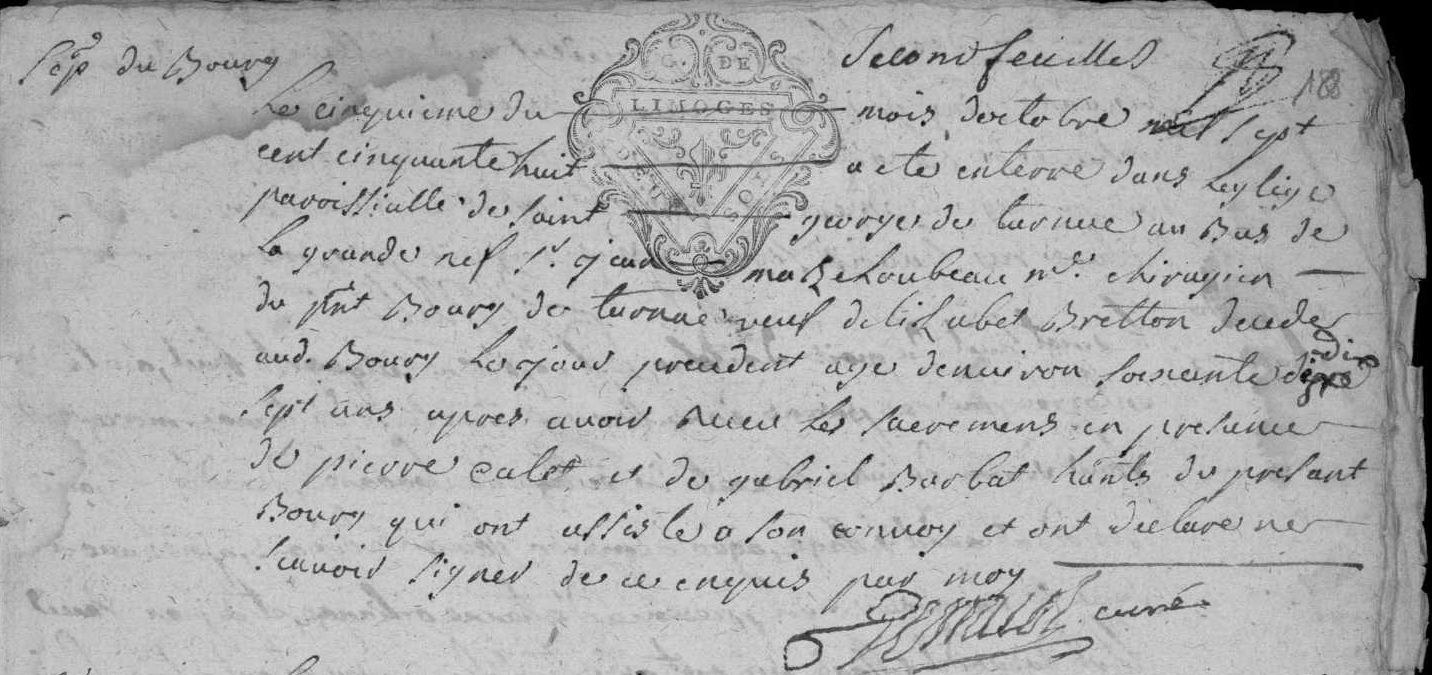 Sep. du Bourg
Second feuilles
188
G. DE
LIMOGES
DEUX SOLS
Le cinquieme du mois doctobre mil sept
cent cinquante huit a ete enterre dans leglise
paroissialle de saint george de turnac au Bas de
la grande nef Sr. jean Loubeau me. chirugien
du pnt Bourg de turnac veuf delizabet Bretton decede
aud. Bourg le jour precedent age denviron soixante dix
sept ans apres avoir Receu les sacremens en presence
de pierre calet et de gabriel Barbat hants du presant
Bourg qui ont assiste a son convoy et ont declare ne
scavoir signer de ce enquis par moy
curé